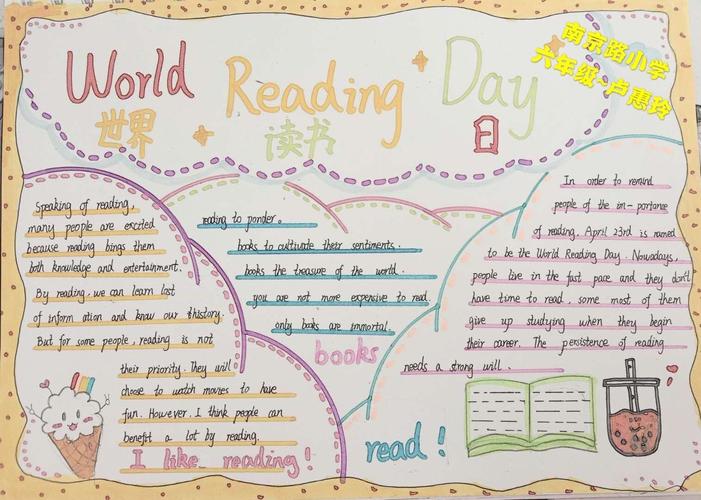 World Reading Day
世界 读书 日
南京路小学
六年级·卢惠玲
Speaking of reading,
many people are excited
because reading bings them
both knowledge and entertainment.
By reading, we can learn lost
of inform ation and know our thistory.
But for some people, reading is not
their priority. They will
choose to watch movies to have
fun. However, I think people can
benefit a lot by reading.
I like reading!
reading to ponder.
books to cultivate their sentiments.
books the treasure of the world.
you are not more expensive to read.
only books are immortal.
books
In order to remind
people of the im-portance
of reading. April 23rd is named
to be the World Reading Day. Nowadays,
people live in the fast pace and they don't
have time to read, some most of them
give up studying when they begin
their career. The persistence of reading
needs a strong will.
read!